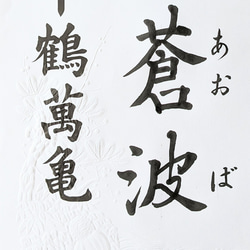 蒼波
あおば
鶴萬亀